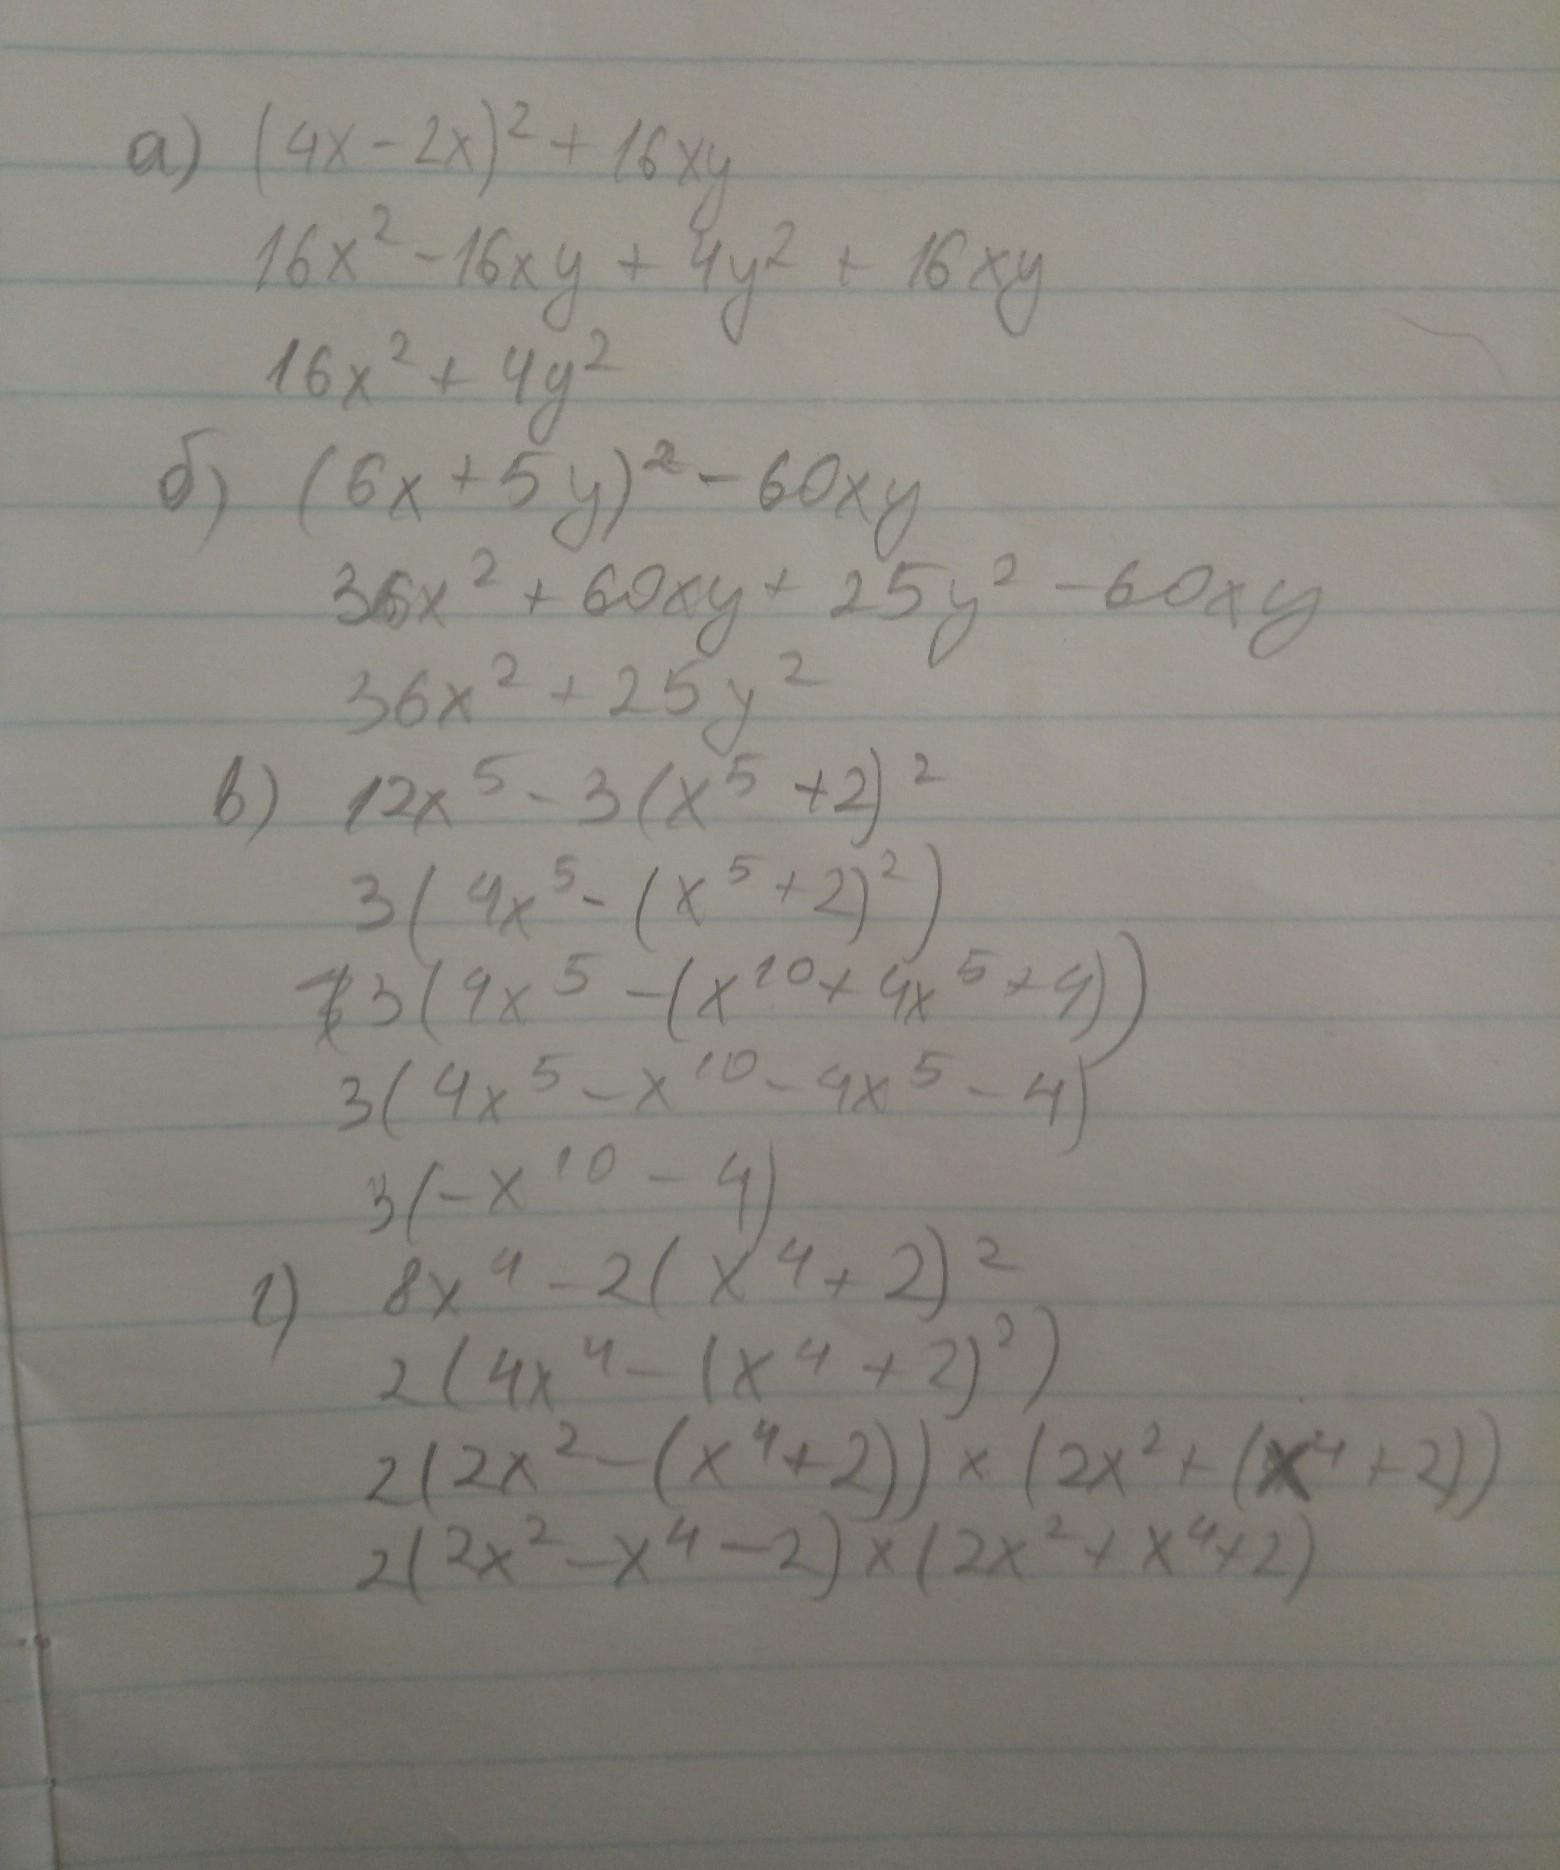 а) (4x - 2x)² + 16xy
16x² - 16xy + 4y² + 16xy
16x² + 4y²
б) (6x + 5y)² - 60xy
36x² + 60xy + 25y² - 60xy
36x² + 25y²
в) 12x⁵ - 3(x⁵ + 2)²
3(4x⁵ - (x⁵ + 2)²)
3(4x⁵ - (x¹⁰ + 4x⁵ + 4))
3(4x⁵ - x¹⁰ - 4x⁵ - 4)
3(-x¹⁰ - 4)
г) 8x⁴ - 2(x⁴ + 2)²
2(4x⁴ - (x⁴ + 2)²)
2(2x² - (x⁴ + 2)) × (2x² + (x⁴ + 2))
2(2x² - x⁴ - 2) × (2x² + x⁴ + 2)